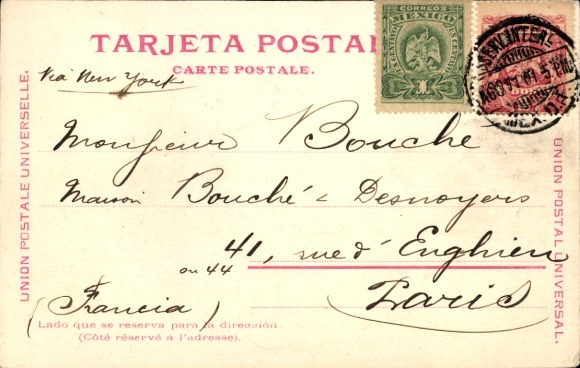 TARJETA POSTAL
CARTE POSTALE.
Via New York
CORREOS
MEXICO
1
SERV. INT. CAL
AGO 11 01 5 PM
MEX. D.F.
UNION POSTALE UNIVERSELLE.
UNION POSTAL UNIVERSAL.
Monsieur Bouche
Maison Bouché & Desnoyers
41, rue d'Enghien
ou 44
(Francia) Paris
Lado que se reserva para la dirección
(Côté réservé à l'adresse).